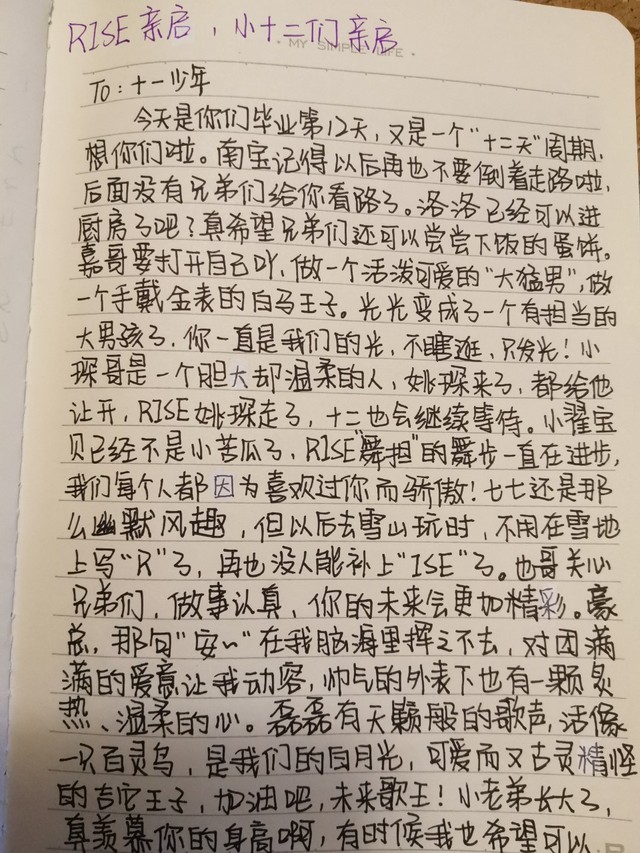 RISE亲启，小十二们亲启
· MY SIMPLE LIFE ·
To：十一少年
今天是你们毕业第12天，又是一个“十二天”周期，
想你们啦。南宝记得以后再也不要倒着走路啦，
后面没有兄弟们给你看路了。洛洛已经可以进
厨房了吧？真希望兄弟们还可以尝尝下饭的蛋饼。
嘉哥要打开自己吖，做一个活泼可爱的“大猛男”，做
一个手戴金表的白马王子。光光变成了一个有担当的
大男孩了，你一直是我们的光，不瞎逛，只发光！小
琛哥是一个胆大却温柔的人，姚琛来了，都给他
让开，RISE姚琛走了，十二也会继续等待。小翟宝
贝已经不是小苦瓜了，RISE“舞担”的舞步一直在进步，
我们每个人都因为喜欢过你而骄傲！七七还是那
么幽默风趣，但以后去雪山玩时，不用在雪地
上写“R”了，再也没人能补上“ISE”了。也哥关心
兄弟们，做事认真，你的未来会更加精彩。豪
总，那句“安～”在我脑海里挥之不去，对团满
满的爱意让我动容，帅气的外表下也有一颗炙
热、温柔的心。磊磊有天籁般的歌声，活像
一只百灵鸟，是我们的白月光，可爱而又古灵精怪
的吉它王子，加油吧，未来歌王！小老弟长大了，
真羡慕你的身高啊，有时候我也希望可以